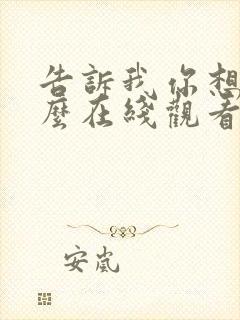 告訴我你想
麼在綫觀看
安嵐